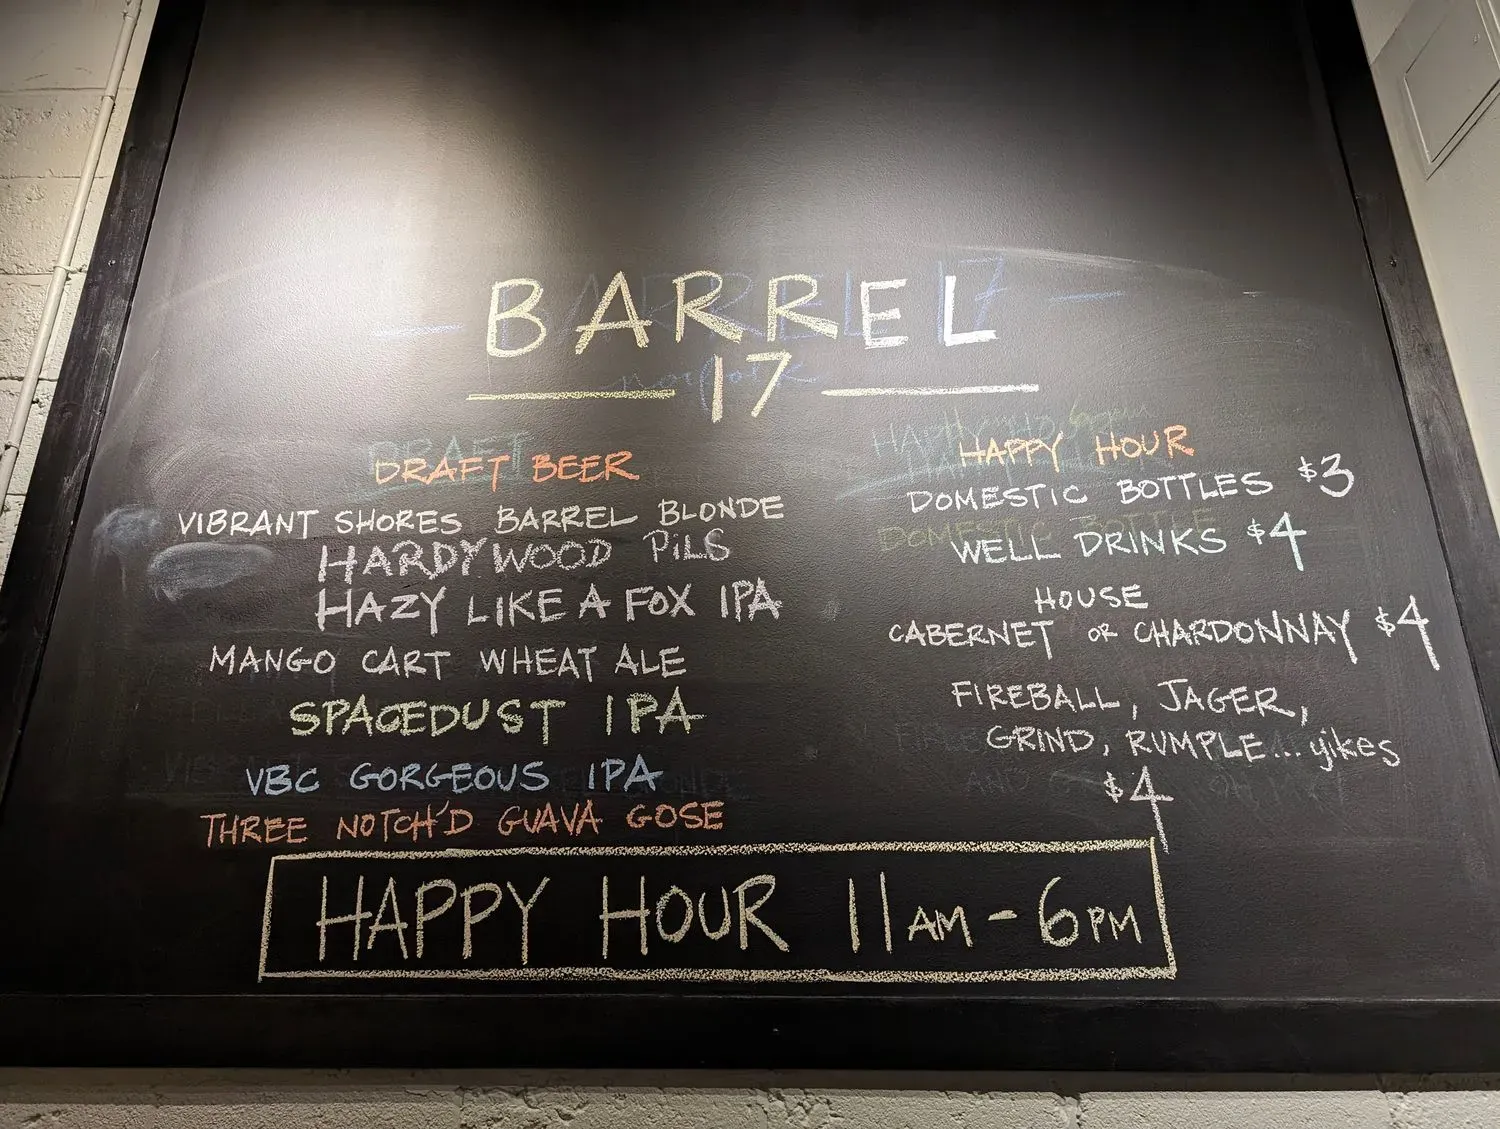 BARREL
17
DRAFT BEER
VIBRANT SHORES BARREL BLONDE
HARDYWOOD PILS
HAZY LIKE A FOX IPA
MANGO CART WHEAT ALE
SPACEDUST IPA
VBC GORGEOUS IPA
THREE NOTCH'D GUAVA GOSE
HAPPY HOUR
DOMESTIC BOTTLES $3
WELL DRINKS $4
HOUSE
CABERNET OR CHARDONNAY $4
FIREBALL, JAGER,
GRIND, RUMPLE... yikes
$4
HAPPY HOUR 11AM - 6PM